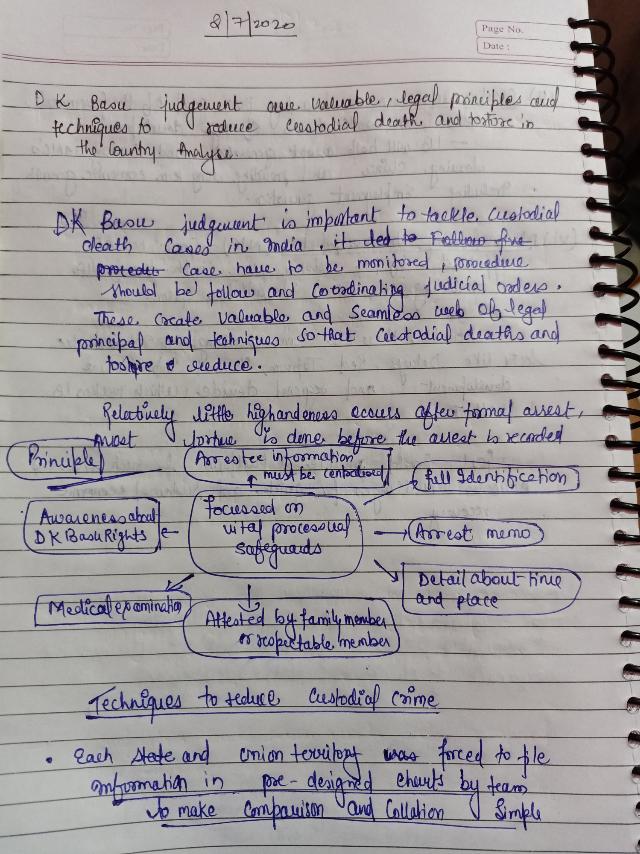 8/7/2020
Page No.
Date :
D K Basu judgement are valuable, legal principles and
techniques to reduce custodial death and torture in
the Country Analyse.
DK Basu judgement is important to tackle custodial
death cases in India. it led to Follow five
procedu case have to be monitored, procedure
should be follow and coordinating judicial orders.
These create valuable and seamless web of legal
principal and techniques so that custodial deaths and
torture reduce.
Relatively little highandeness occurs after formal arrest,
Most tortue is done before the arrest is recorded
Principle
Arrestee information
must be centralised
full Identification
Awareness about
DK Basu Rights
focussed on
vital processual
safeguards
Arrest memo
Detail about time
and place
Medical examination
Attested by family member
or respectable member
Techniques to reduce custodial crime
• Each state and union territory was forced to file
information in pre-designed charts by team
to make comparison and collation simple